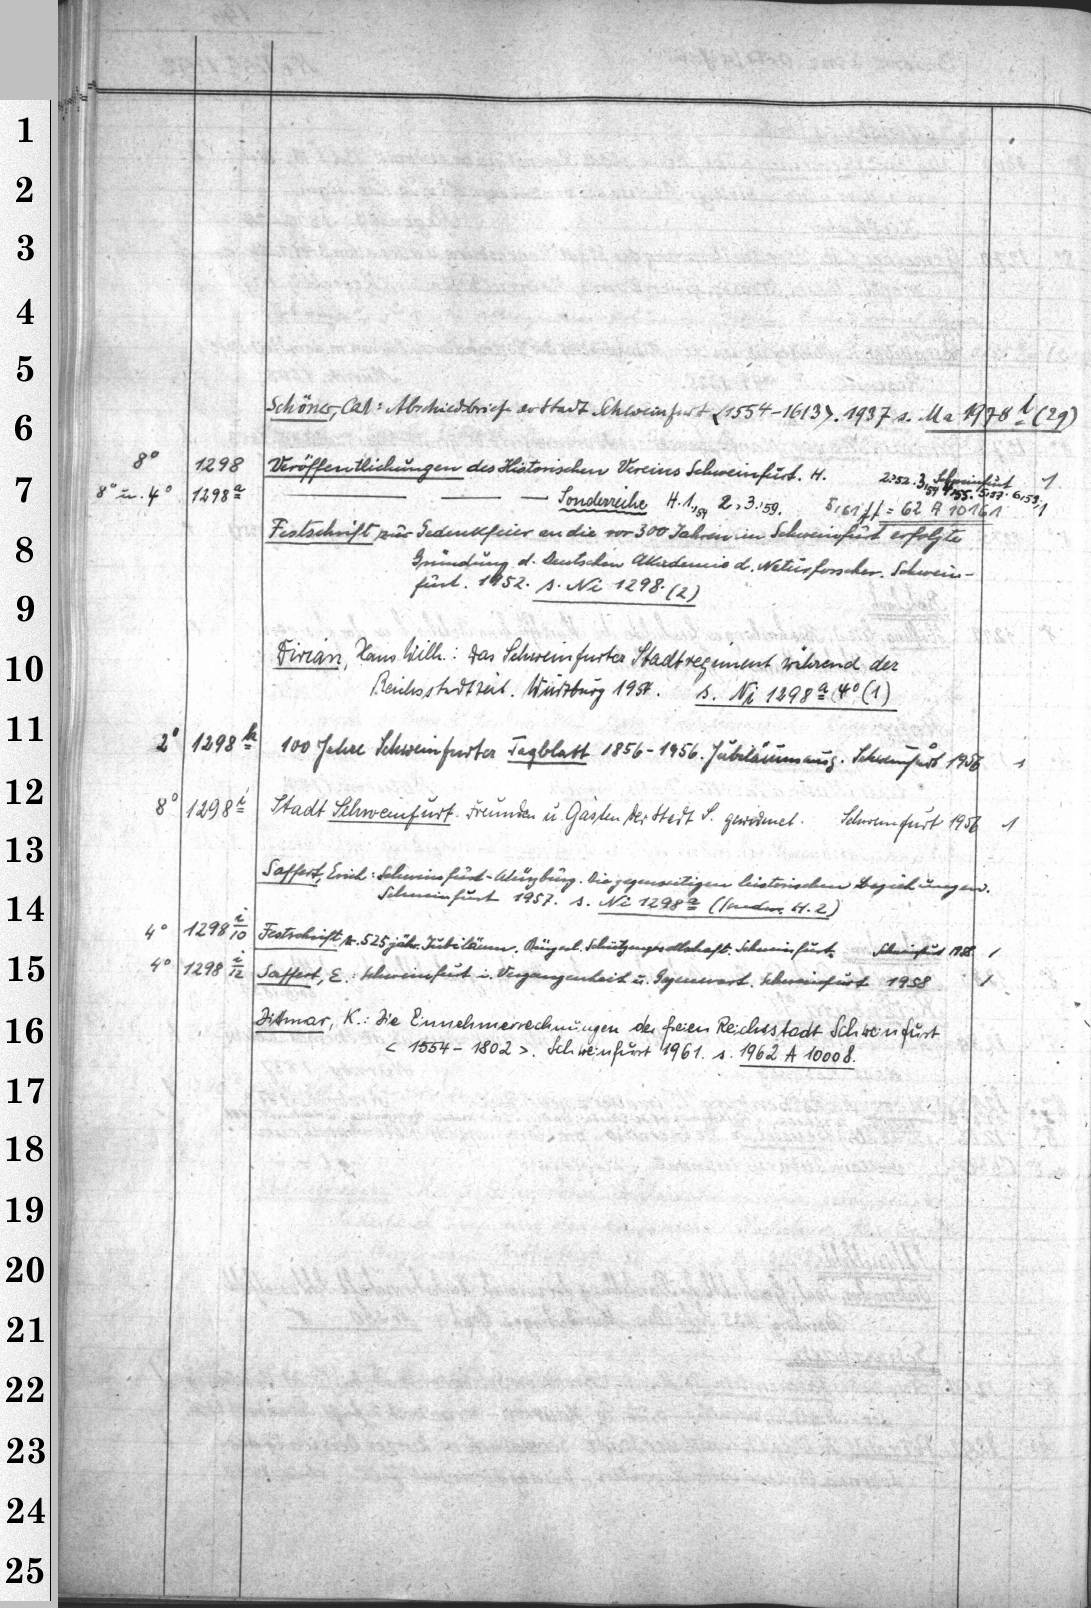 1
2
3
4
5
6
7
8
9
10
11
12
13
14
15
16
17
18
19
20
21
22
23
24
25
Schöner, Carl: Abschiedsbriefe der Stadt Schweinfurt <1554-1613>. 1937 s. Ma 1978 (29)
8° 1298 Veröffentlichungen des Historischen Vereins Schweinfurt. H. Schweinfurt 1
8° u. 4° 1298 a Sonderreihe H. 1,54 2,3.'59. 5,61ff = 62 A 10161 1
Festschrift zur Gedenkfeier an die vor 300 Jahren in Schweinfurt erfolgte
Gründung d. Deutschen Akademie d. Naturforscher. Schwein-
furt. 1952. s. Ni 1298.(2)
Dirian, Hans Wilh.: Das Schweinfurter Stadtregiment während der
Reichsstadtzeit. Würzburg 1954. s. Ni 1298 a 4° (1)
2° 1298 h 100 Jahre Schweinfurter Tagblatt 1856-1956. Jubiläumsausg. Schweinfurt 1956 1
8° 1298 i Stadt Schweinfurt. Freunden u. Gästen der Stadt S. gewidmet. Schweinfurt 1956 1
Saffert, Erich: Schweinfurt-Würzburg. Die gegenseitigen historischen Beziehungen.
Schweinfurt 1957. s. Ni 1298 a (Sonder. H. 2)
4° 1298 i/10 Festschrift z. 525 jähr. Jubiläum. Bürgerl. Schützengesellschaft Schweinfurt. Schweinfurt 1958 1
4° 1298 i/12 Saffert, E.: Schweinfurt i. Vergangenheit u. Gegenwart. Schweinfurt 1958 1
Dittmar, K.: Die Einnehmerrechnungen der freien Reichsstadt Schweinfurt
< 1554-1802 >. Schweinfurt 1961. s. 1962 A 10008.